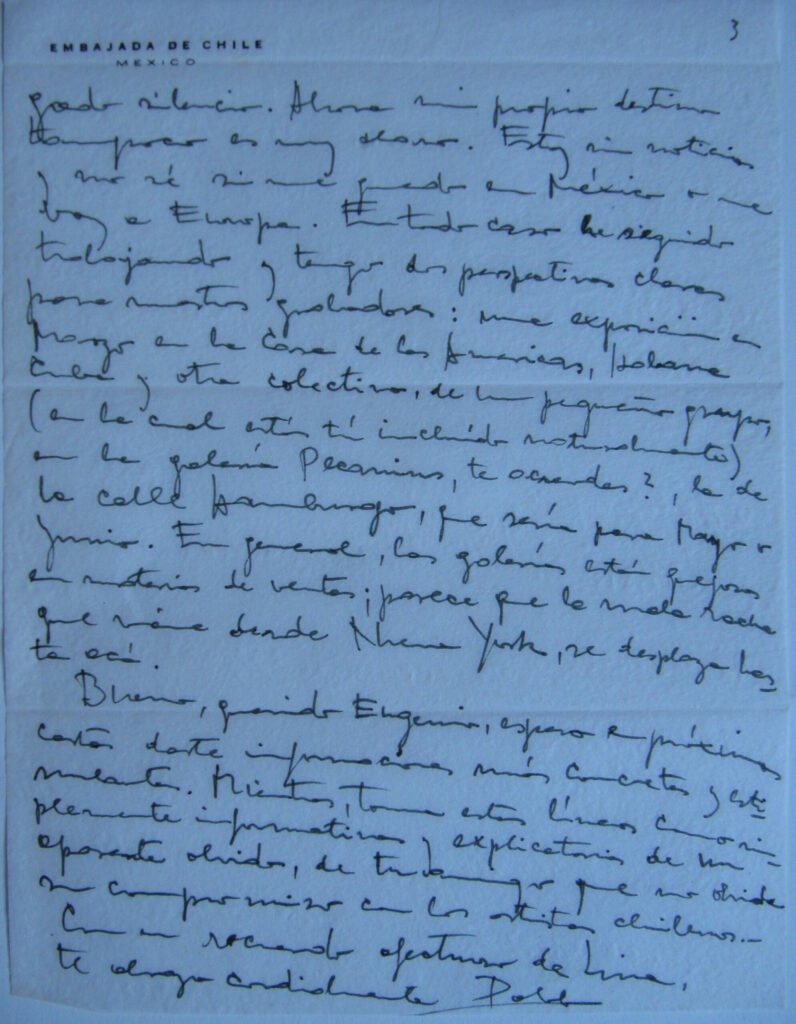 EMBAJADA DE CHILE
MEXICO
3
gado silencio. Ahora mi propio destino
tampoco es muy claro. Estoy sin noticias
y no sé si me quedo en México o me
voy a Europa. En todo caso he seguido
trabajando y tengo dos perspectivas claras
para nuestros grabadores: una exposición en
Marzo en la Casa de las Américas, Habana
Cuba y otra colectiva, de un pequeño grupo,
(en la cual estás tú incluído naturalmente)
en la galería Pecanins, te acuerdas?, la de
la calle Hamburgo, que sería para Mayo o
Junio. En general, las galerías están quejosas
en materia de ventas; parece que la mala racha
que viene desde Nueva York, se desplaza has
ta acá.
Bueno, querido Eugenio, espero en próximas
cartas darte informaciones más concretas y esti
mulantes. Mientras, toma estas líneas como sim
plemente informativas y explicatorias de un
aparente olvido, de tu amigo que no olvida
su compromiso con los artistas chilenos.-
Con un recuerdo afectuoso de Lina,
te abraza cordialmente